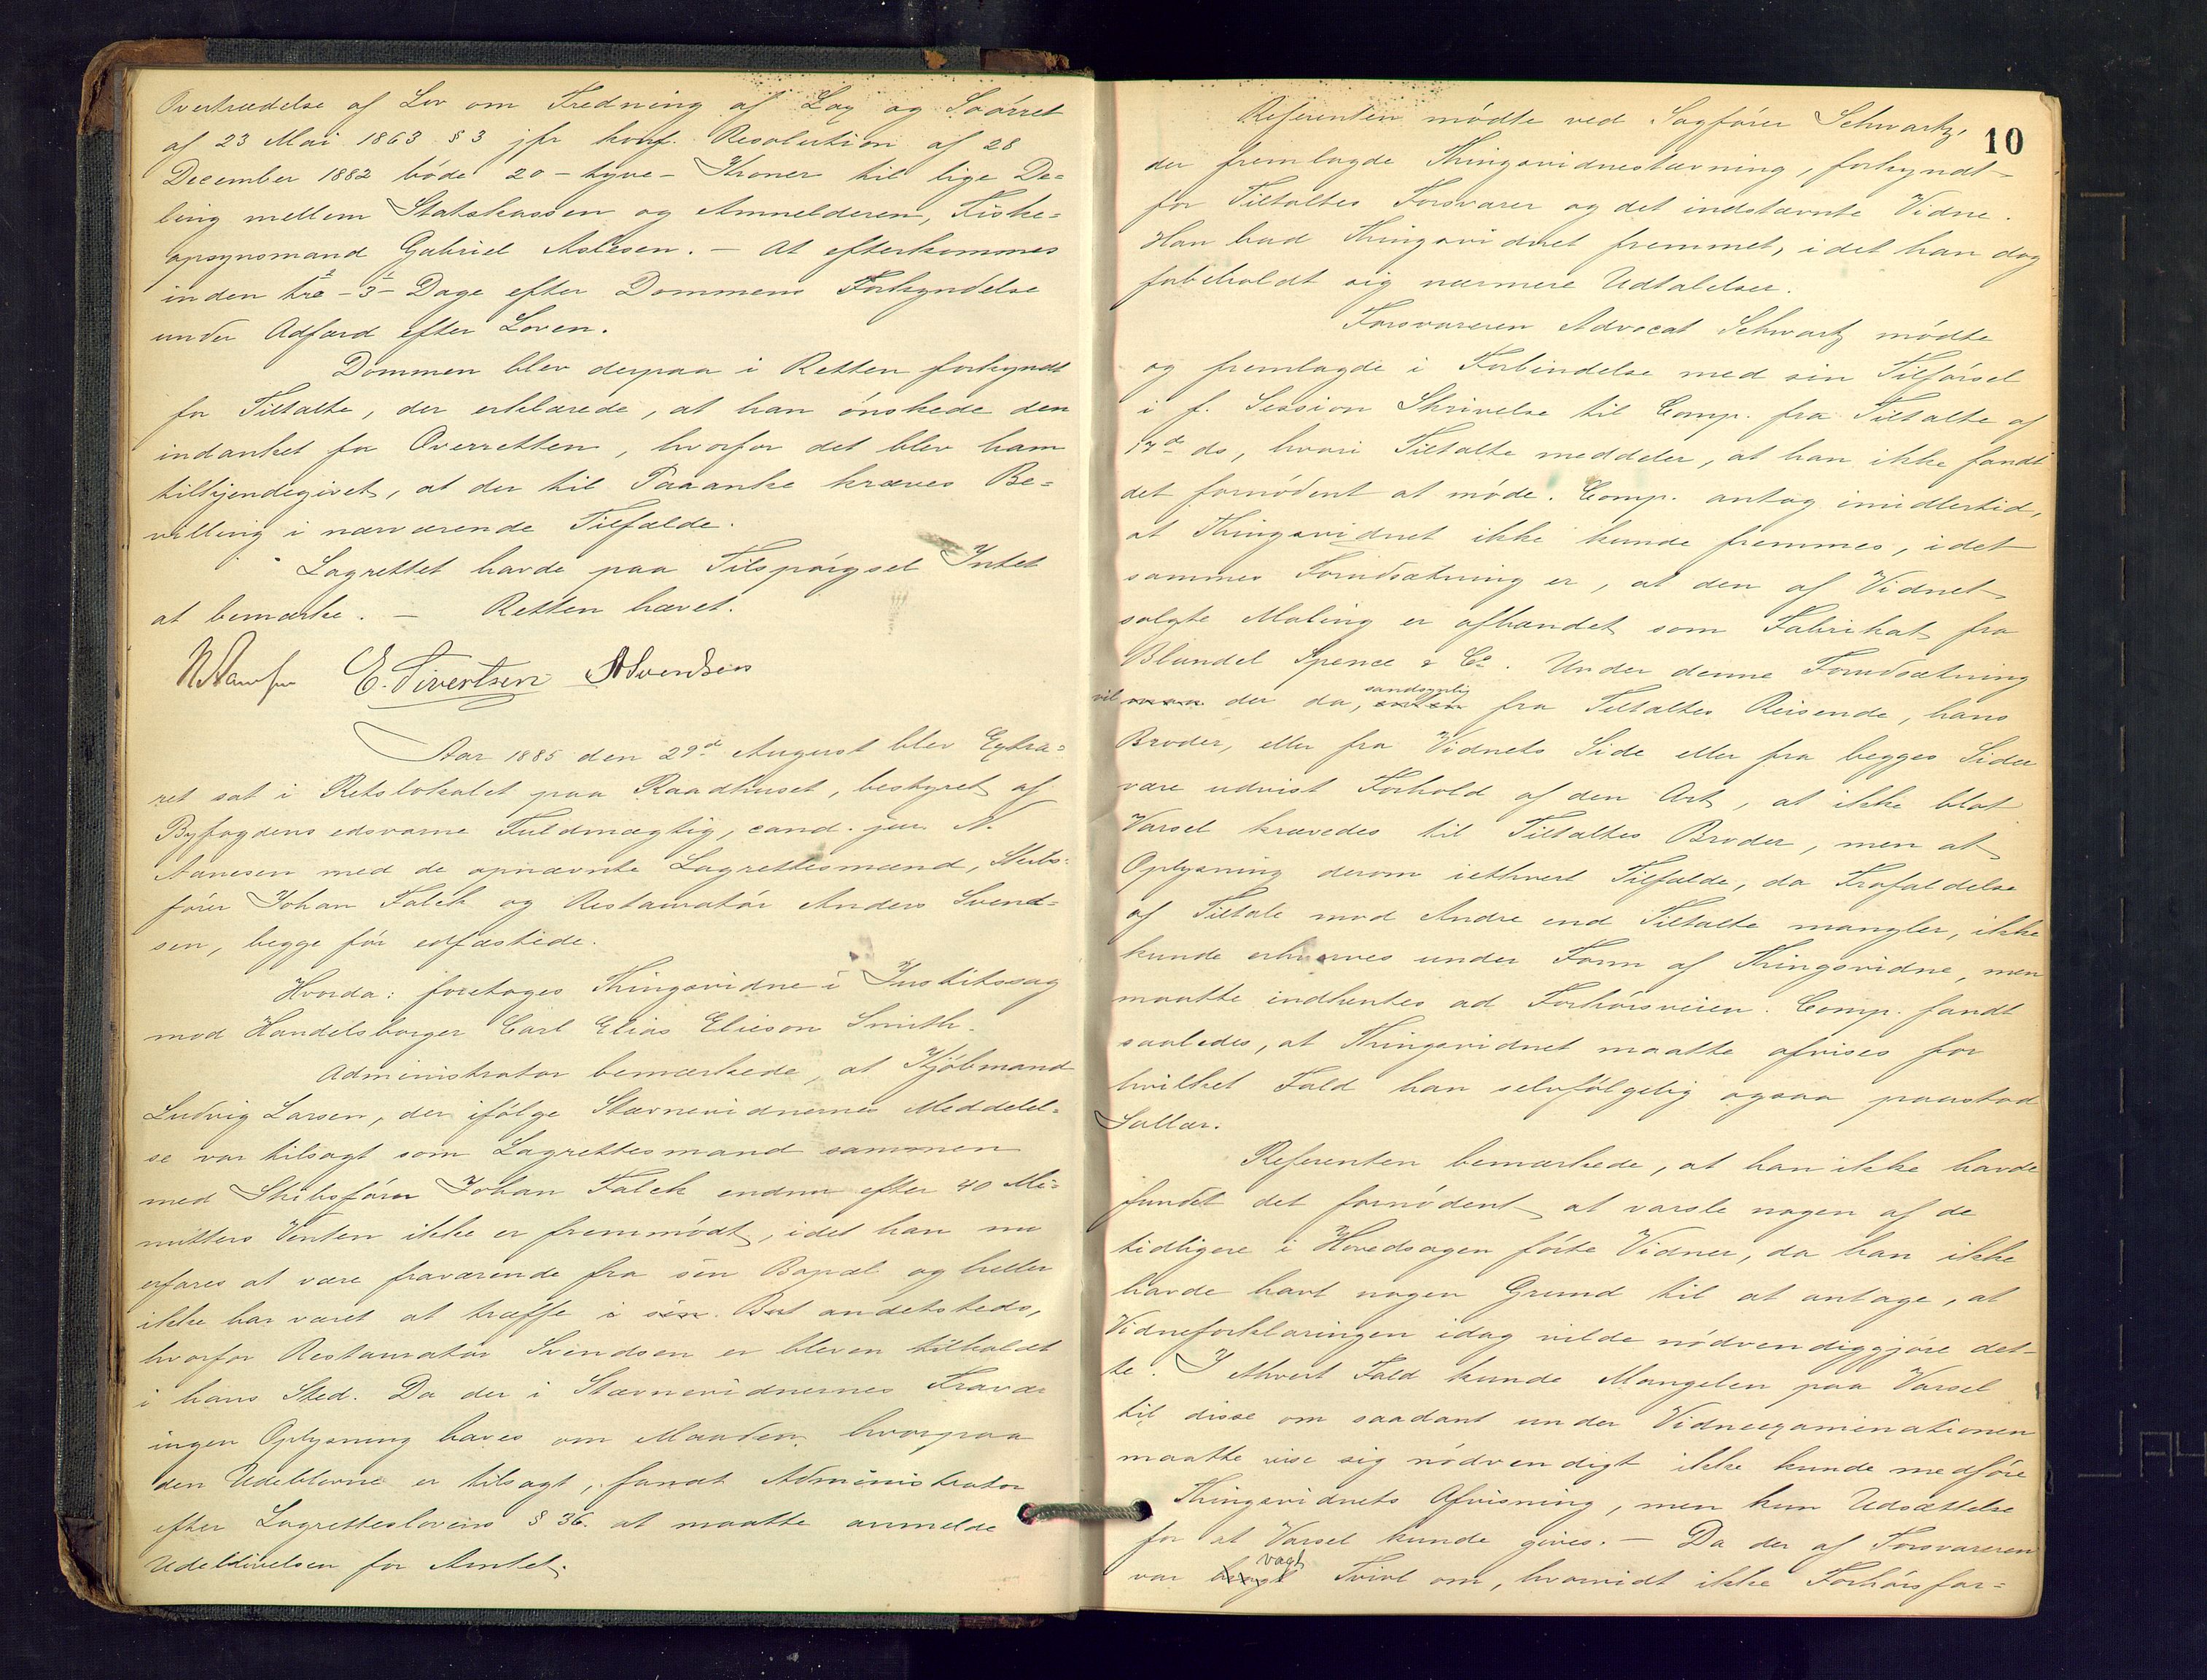 Overtrædelse af Lov om Fredning af Lax og Søørret
af 23 Mai 1863 § 3 jfr kongl. Resolution af 28
December 1882 bøde 20 - tyve - Kroner til lige De=
ling mellem Statskassen og Anmelderen, Fiske=
opsynsmand Gabriel Aslesen. — At efterkommes
inden tre - 3 - Dage efter Dommens Forkyndelse
under Adfærd efter Loven.
Dommen blev derpaa i Retten forkyndt
for Tiltalte, der erklærede, at han ønskede den
indanket for Overretten, hvorfor det blev ham
tilkjendegivet, at der til Paaanke kræves Be=
villing i nærværende Tilfælde.
Lagrettet havde paa Tilspørgsel Intet
at bemærke. — Retten hævet.
E. Sivertsen ASvendsen
Aar 1885 den 29d August blev Extra=
ret sat i Retslokalet paa Raadhuset, bestyret af
Byfogdens edsvorne Fuldmægtig, cand. jur. N.
Aanesen med de opnævnte Lagrettesmænd, Skibs=
fører Johan Falck og Restauratør Anders Svend=
sen, begge før edfæstede.
Hvorda: foretoges Thingsvidne i Justitssag
mod Handelsborger Carl Elias Elieson Smith.
Administrator bemærkede, at Kjøbmand
Ludvig Larsen, der ifølge Stævnevidnernes Meddelel=
se var tilsagt som Lagrettesmand sammen
med Skibsfører Johan Falck endnu efter 40 Mi=
nutters Venten ikke er fremmødt, idet han nu
erfares at være fraværende fra sin Bopæl og heller
ikke har været at træffe i sin But andetsteds,
hvorfor Restauratør Svendsen er bleven tilkaldt
i hans Sted. Da der i Stævnevidnernes Fravær
ingen Oplysning haves om Maaden, hvorpaa
den Udeblevne er tilsagt, fandt Administrator
efter Lagretteslovens § 36. at maatte anmelde
Udeblivelsen for Amtet.
10
Referenten mødte ved Sagfører Schwartz,
der fremlagde Thingsvidnestævning, forkyndt
for Tiltaltes Forsvarer og det indstævnte Vidne.
Han bad Thingsvidnet fremmet, idet han dog
forbeholdt sig nærmere Udtalelser.
Forsvareren Advocat Schwartz mødte
og fremlagde i Forbindelse med sin Tilførsel
i f. Session Skrivelse til Comp. fra Tiltalte af
17de ds, hvori Tiltalte meddeler, at han ikke fandt
det fornødent at møde. Comp. antog imidlertid,
at Thingsvidnet ikke kunde fremmes, idet
sammes Forudsætning er, at den af Vidnet
solgte Maling er afhændet som Fabrikat fra
Blundel Spence & Co. Under denne Forudsætning
vil maa der da, sandsynlig enten fra Tiltaltes Reisende, hans
Broder, eller fra Vidnets Side eller fra begges Sider
være udvist Forhold af den Art, at ikke blot
Varsel krævedes til Tiltaltes Broder, men at
Oplysning derom iethvert Tilfælde, da Frafaldelse
af Tiltale mod Andre end Tiltalte mangler, ikke
kunde erhverves under Form af Thingsvidne, men
maatte indhentes ad Forhørsveien. Comp. fandt
saaledes, at Thingsvidnet maatte afvises for
hvilket Fald han selvfølgelig ogsaa paastod
Sallær.
Referenten bemærkede, at han ikke havde
fundet det fornødent at varsle nogen af de
tidligere i Hovedsagen førte Vidner, da han ikke
havde havt nogen Grund til at antage, at
Vidneforklaringen idag vilde nødvendiggjøre det=
te. I ethvert Fald kunde Mangelen paa Varsel
til disse om saadant under Vidneexaminationen
maatte vise sig nødvendigt ikke kunde medføre
Thingsvidnets Afvisning, men kun Udsættelse
for at Varsel kunde gives. — Da der af Forsvareren
var bragt vagt Tvivl om, hvorvidt ikke Forhørsfor=